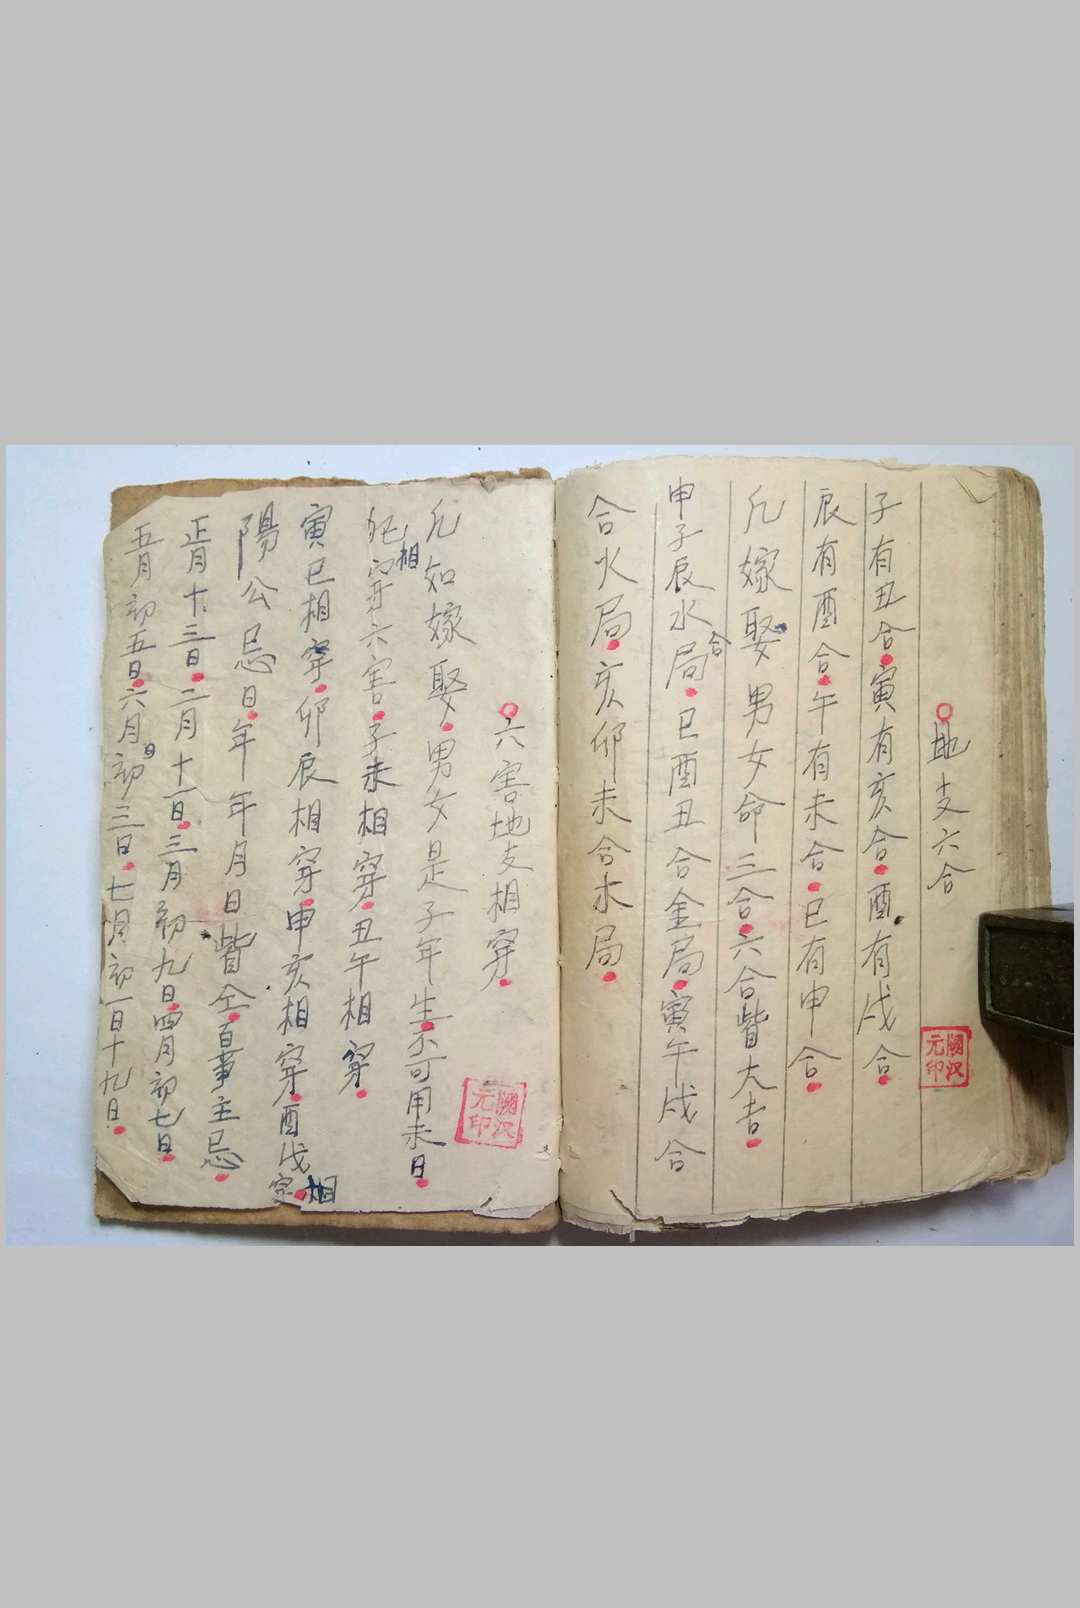 地支六合
子有丑合寅有亥合酉有戌合
辰有酉合午有未合巳有申合
凡嫁娶男女命三合六合皆大吉
申子辰水局合巳酉丑合金局寅午戌合
合火局亥卯未合木局
阙汉元印
六害地支相穿
凡如嫁娶男女是子年生不可用未日
犯相穿六害子未相穿丑午相穿
寅巳相穿卯辰相穿申亥相穿酉戌相穿
陽公忌日年年月日皆仝百事主忌
正月十三日二月十一日三月初九日四月初七日
五月初五日六月初三日七月初一日十九日
阙汉元印